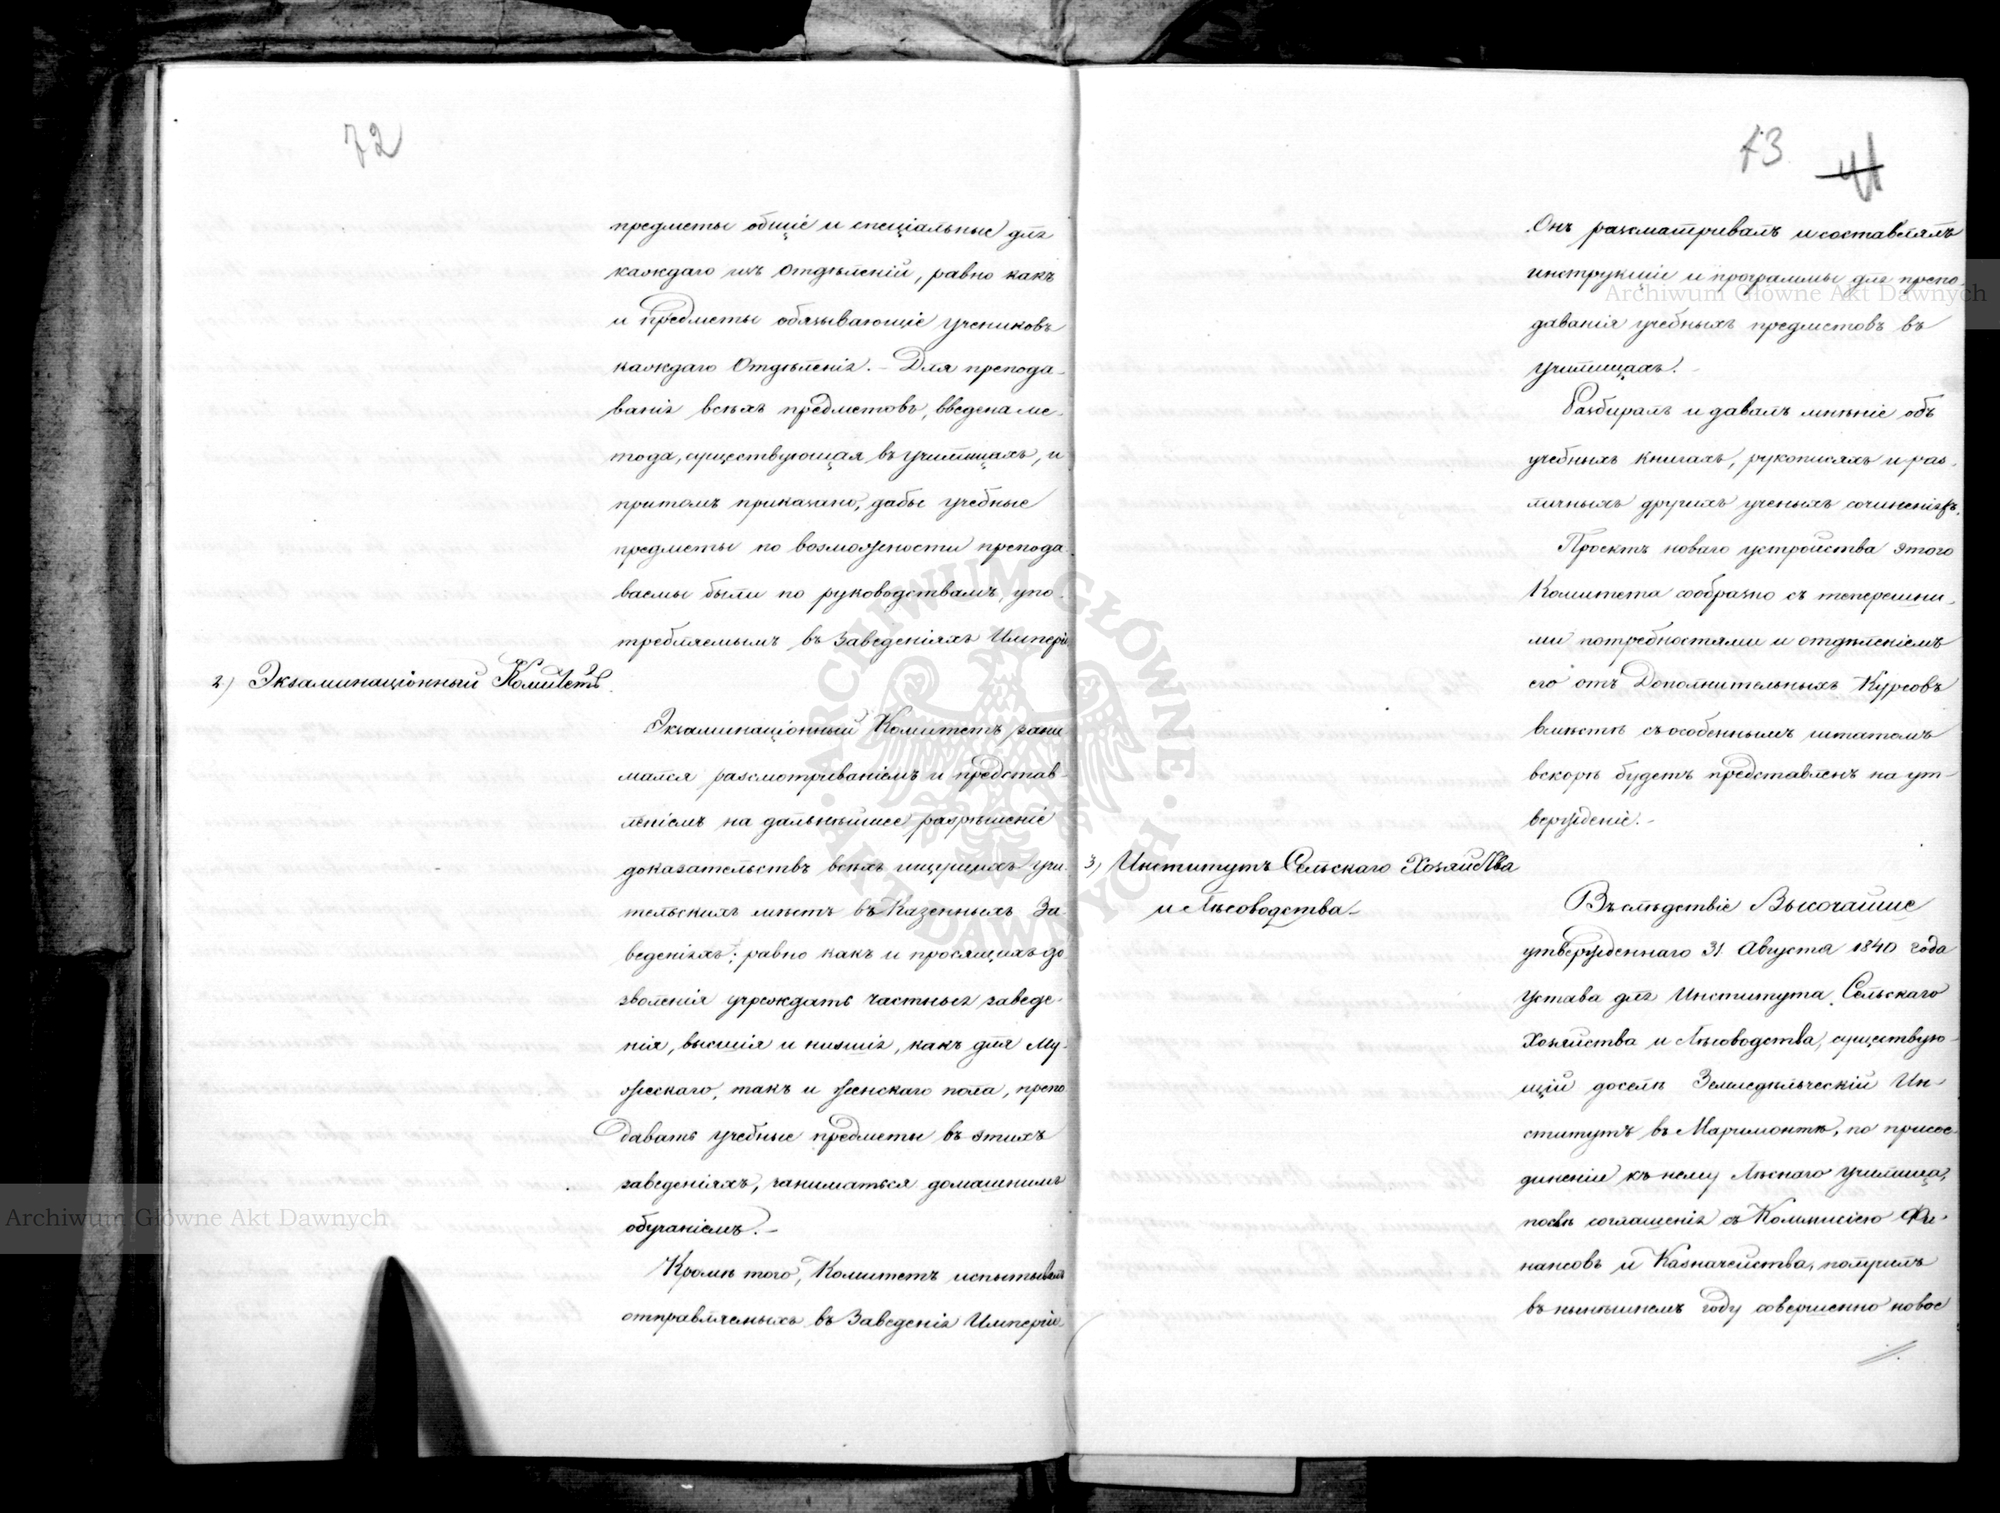 72
предметы общіе и спеціальные для
каждаго изъ отдѣленій, равно какъ
и предметы обязывающіе учениковъ
каждаго Отдѣленія. – Для препода-
ванія всѣхъ предметовъ, введена ме-
тода, существующая въ училищахъ, и
притомъ приказано, дабы учебные
предметы по возможности препода-
ваемы были по руководствамъ, упо-
требляемымъ въ Заведеніяхъ Имперіи.
2) Экзаминаціонный Комитетъ.
Экзаминаціонный Комитетъ зани
мался разсмотриваніемъ и представ-
леніемъ на дальнѣйшее разрѣшеніе
доказательствъ всѣхъ ищущихъ учи-
тельскихъ мѣстъ въ Казенныхъ За-
веденіяхъ; равно какъ и просящихъ до-
зволенія учреждать частныя заведе-
нія, высшія и низшія, какъ для Му-
жескаго, такъ и женскаго пола, препо
давать учебные предметы въ этихъ
заведеніяхъ, заниматься домашнимъ
обученіемъ. –
Кромѣ того, Комитетъ испытывалъ
отправляемыхъ въ Заведенія Имперіи.
73 41
Онъ разсматривалъ и составлялъ
инструкціи и программы для препо-
даванія учебныхъ предметовъ въ
училищахъ. –
Разбиралъ и давалъ мнѣніе объ
учебныхъ книгахъ, рукописяхъ и раз-
личныхъ другихъ ученыхъ сочиненіяхъ.
Проектъ новаго устройства этого
Комитета сообразно съ теперешни-
ми потребностями и отдѣленіемъ
его отъ Дополнительныхъ Курсовъ
вмѣстѣ съ особеннымъ штатомъ
вскорѣ будетъ представленъ на ут-
вержденіе. –
3) Институтъ Сельскаго Хозяйства
и Лѣсоводства –
Въ слѣдствіе Высочайше
утвержденнаго 31 Августа 1840 года
Устава для Института Сельскаго
Хозяйства и Лѣсоводства, существую-
щій доселѣ Земледѣльческій Ин-
ститутъ въ Маримонтѣ, по присое-
диненіи къ нему Лѣснаго Училища,
послѣ соглашенія съ Коммисіею Фи-
нансовъ и Казначейства, получилъ
въ нынѣшнемъ году совершенно новое
Archiwum Główne Akt Dawnych
Archiwum Główne Akt Dawnych
ARCHIWUM GŁÓWNE · AKT DAWNYCH ·